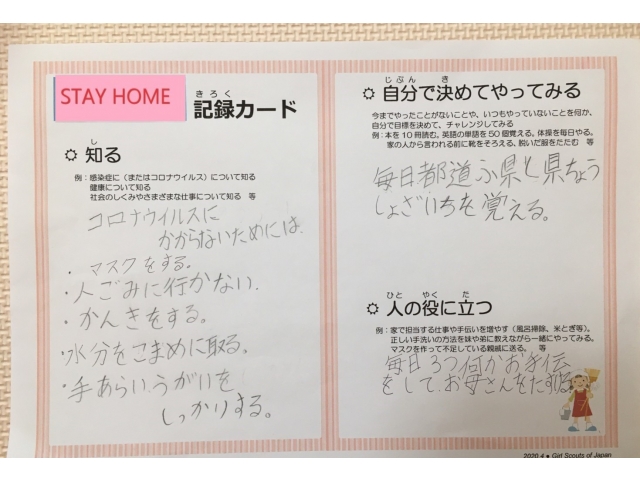 STAY HOME
きろく
記録カード
し
知る
例：感染症に（またはコロナウイルス）について知る
健康について知る
社会のしくみやさまざまな仕事について知る 等
コロナウイルスに
かからないためには、
・マスクをする。
・人ごみに行かない。
・かんきをする。
・水分をこまめに取る。
・手あらい、うがいを
しっかりする。
じぶん き
自分で決めてやってみる
今までやったことがないことや、いつもやっていないことを何か、
自分で目標を決めて、チャレンジしてみる
例：本を10冊読む。英語の単語を50個覚える。体操を毎日やる。
家の人から言われる前に靴をそろえる、脱いだ服をたたむ 等
毎日都道ふ県と県ちょう
しょざいちを覚える。
ひと やく た
人の役に立つ
例：家で担当する仕事や手伝いを増やす（風呂掃除、米とぎ等）。
正しい手洗いの方法を妹や弟に教えながら一緒にやってみる。
マスクを作って不足している親戚に送る。 等
毎日3つ何かお手伝
をして、お母さんをたすける
2020.4 ● Girl Scouts of Japan